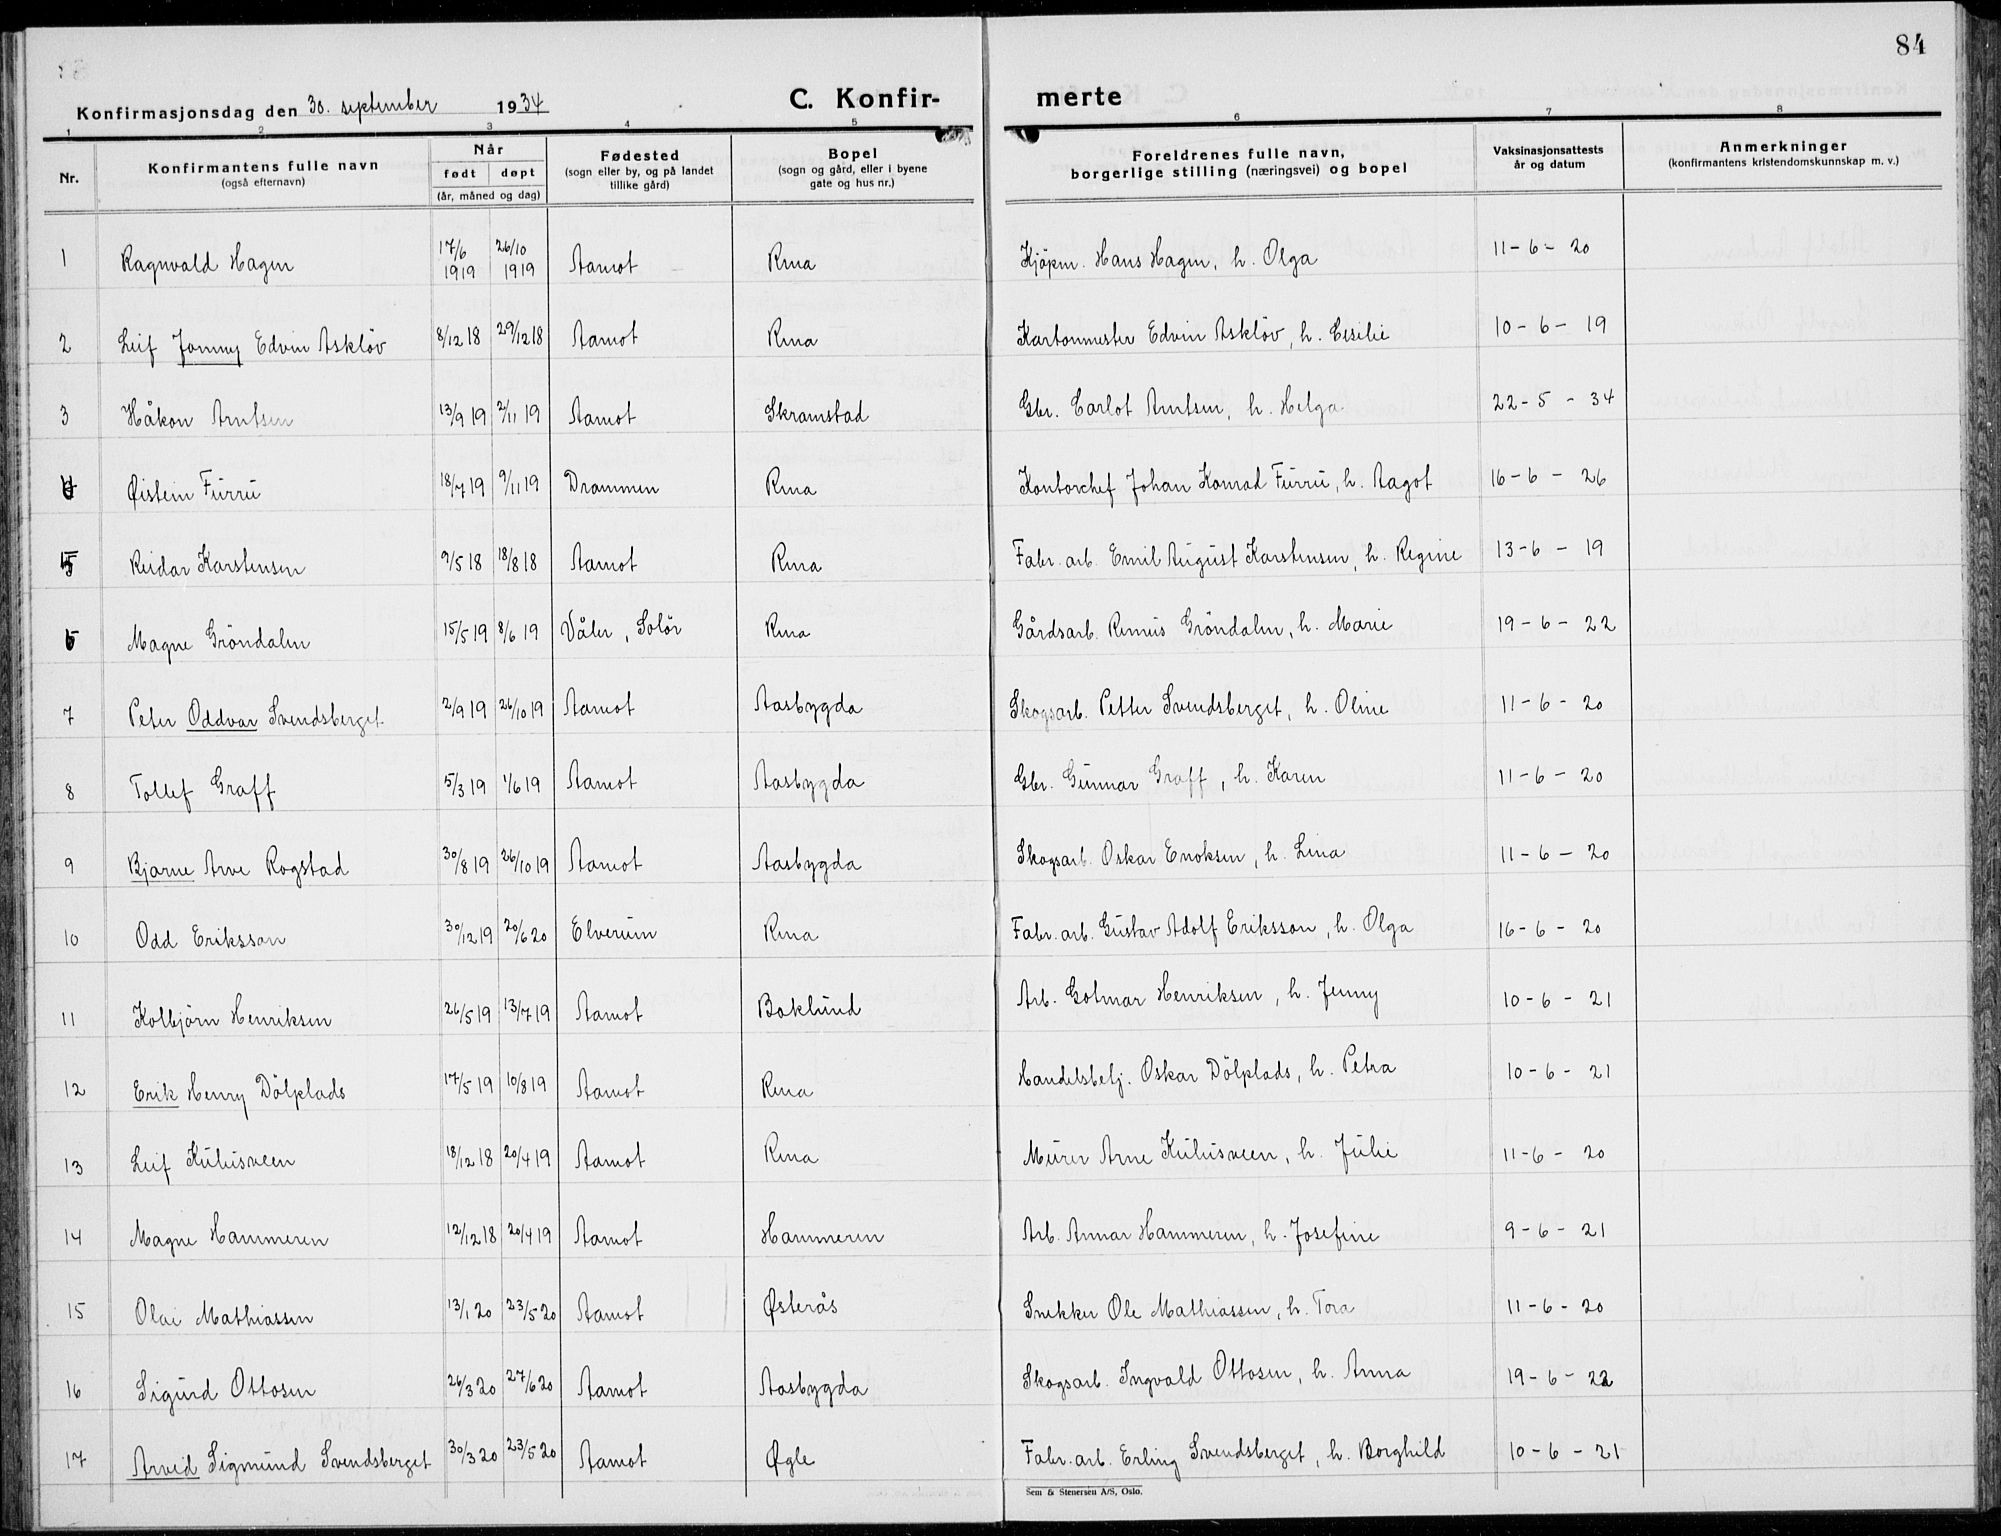 84
Konfirmasjonsdag den 30. september 1934
C. Konfir-
merte
1 2 3 4 5 6 7 8
Nr.
Konfirmantens fulle navn
(også efternavn)
Når
født døpt
(år, måned og dag)
Fødested
(sogn eller by, og på landet
tillike gård)
Bopel
(sogn og gård, eller i byene
gate og hus nr.)
Foreldrenes fulle navn,
borgerlige stilling (næringsvei) og bopel
Vaksinasjonsattests
år og datum
Anmerkninger
(konfirmantens kristendomskunnskap m. v.)
1 Ragnvald Hagen 17/6 1919 26/10 1919 Aamot Rena Kjøpm. Hans Hagen, h. Olga 11-6-20
2 Leif Jonny Edvin Askløv 8/12 18 29/12 18 Aamot Rena Kartonmester Edvin Askløv, h. Cesilie 10-6-19
3 Håkon Arntsen 13/9 19 2/11 19 Aamot Skramstad Gbr. Carlot Arntsen, h. Helga 22-5-34
4 Øistein Furru 18/7 19 9/11 19 Drammen Rena Kontorchef Johan Konrad Furru, h. Aagot 16-6-26
5 Reidar Karstensen 9/5 18 18/8 18 Aamot Rena Fabr. arb. Emil August Karstensen, h. Regine 13-6-19
6 Magne Gröndalen 15/5 19 8/6 19 Våler, Solör Rena Gårdsarb. Remus Gröndalen, h. Marie 19-6-22
7 Peter Oddvar Svendsberget 2/9 19 26/10 19 Aamot Aasbygda Skogsarb. Petter Svendsberget, h. Oline 11-6-20
8 Tollef Graff 5/3 19 1/6 19 Aamot Aasbygda Gbr. Gunnar Graff, h. Karen 11-6-20
9 Bjarne Arve Rogstad 30/8 19 26/10 19 Aamot Aasbygda Skogsarb. Oskar Enoksen, h. Lina 11-6-20
10 Odd Eriksson 30/12 19 20/6 20 Elverum Rena Fabr. arb. Gustav Adolf Eriksson, h. Olga 16-6-20
11 Kolbjörn Henriksen 26/5 19 13/7 19 Aamot Boklund Arb. Gotmar Henriksen, h. Jenny 10-6-21
12 Erik Henry Dölplads 17/5 19 10/8 19 Aamot Rena Handelsbetj. Oskar Dölplads, h. Petra 10-6-21
13 Leif Kuhusveen 18/12 18 20/4 19 Aamot Rena Murer Arne Kuhusveen, h. Julie 11-6-20
14 Magne Hammeren 12/12 18 20/4 19 Aamot Hammeren Arb. Annar Hammeren, h. Josefine 9-6-21
15 Olai Mathiassen 13/1 20 23/5 20 Aamot Østerås Snekker Ole Mathiassen, h. Tora 11-6-20
16 Sigurd Ottosen 26/3 20 27/6 20 Aamot Aasbygda Skogsarb. Ingvald Ottosen, h. Anna 19-6-22
17 Arvid Sigmund Svendsberget 30/3 20 23/5 20 Aamot Øgle Fabr. arb. Erling Svendsberget, h. Borghild 10-6-21
Sem & Stenersen A/S, Oslo.